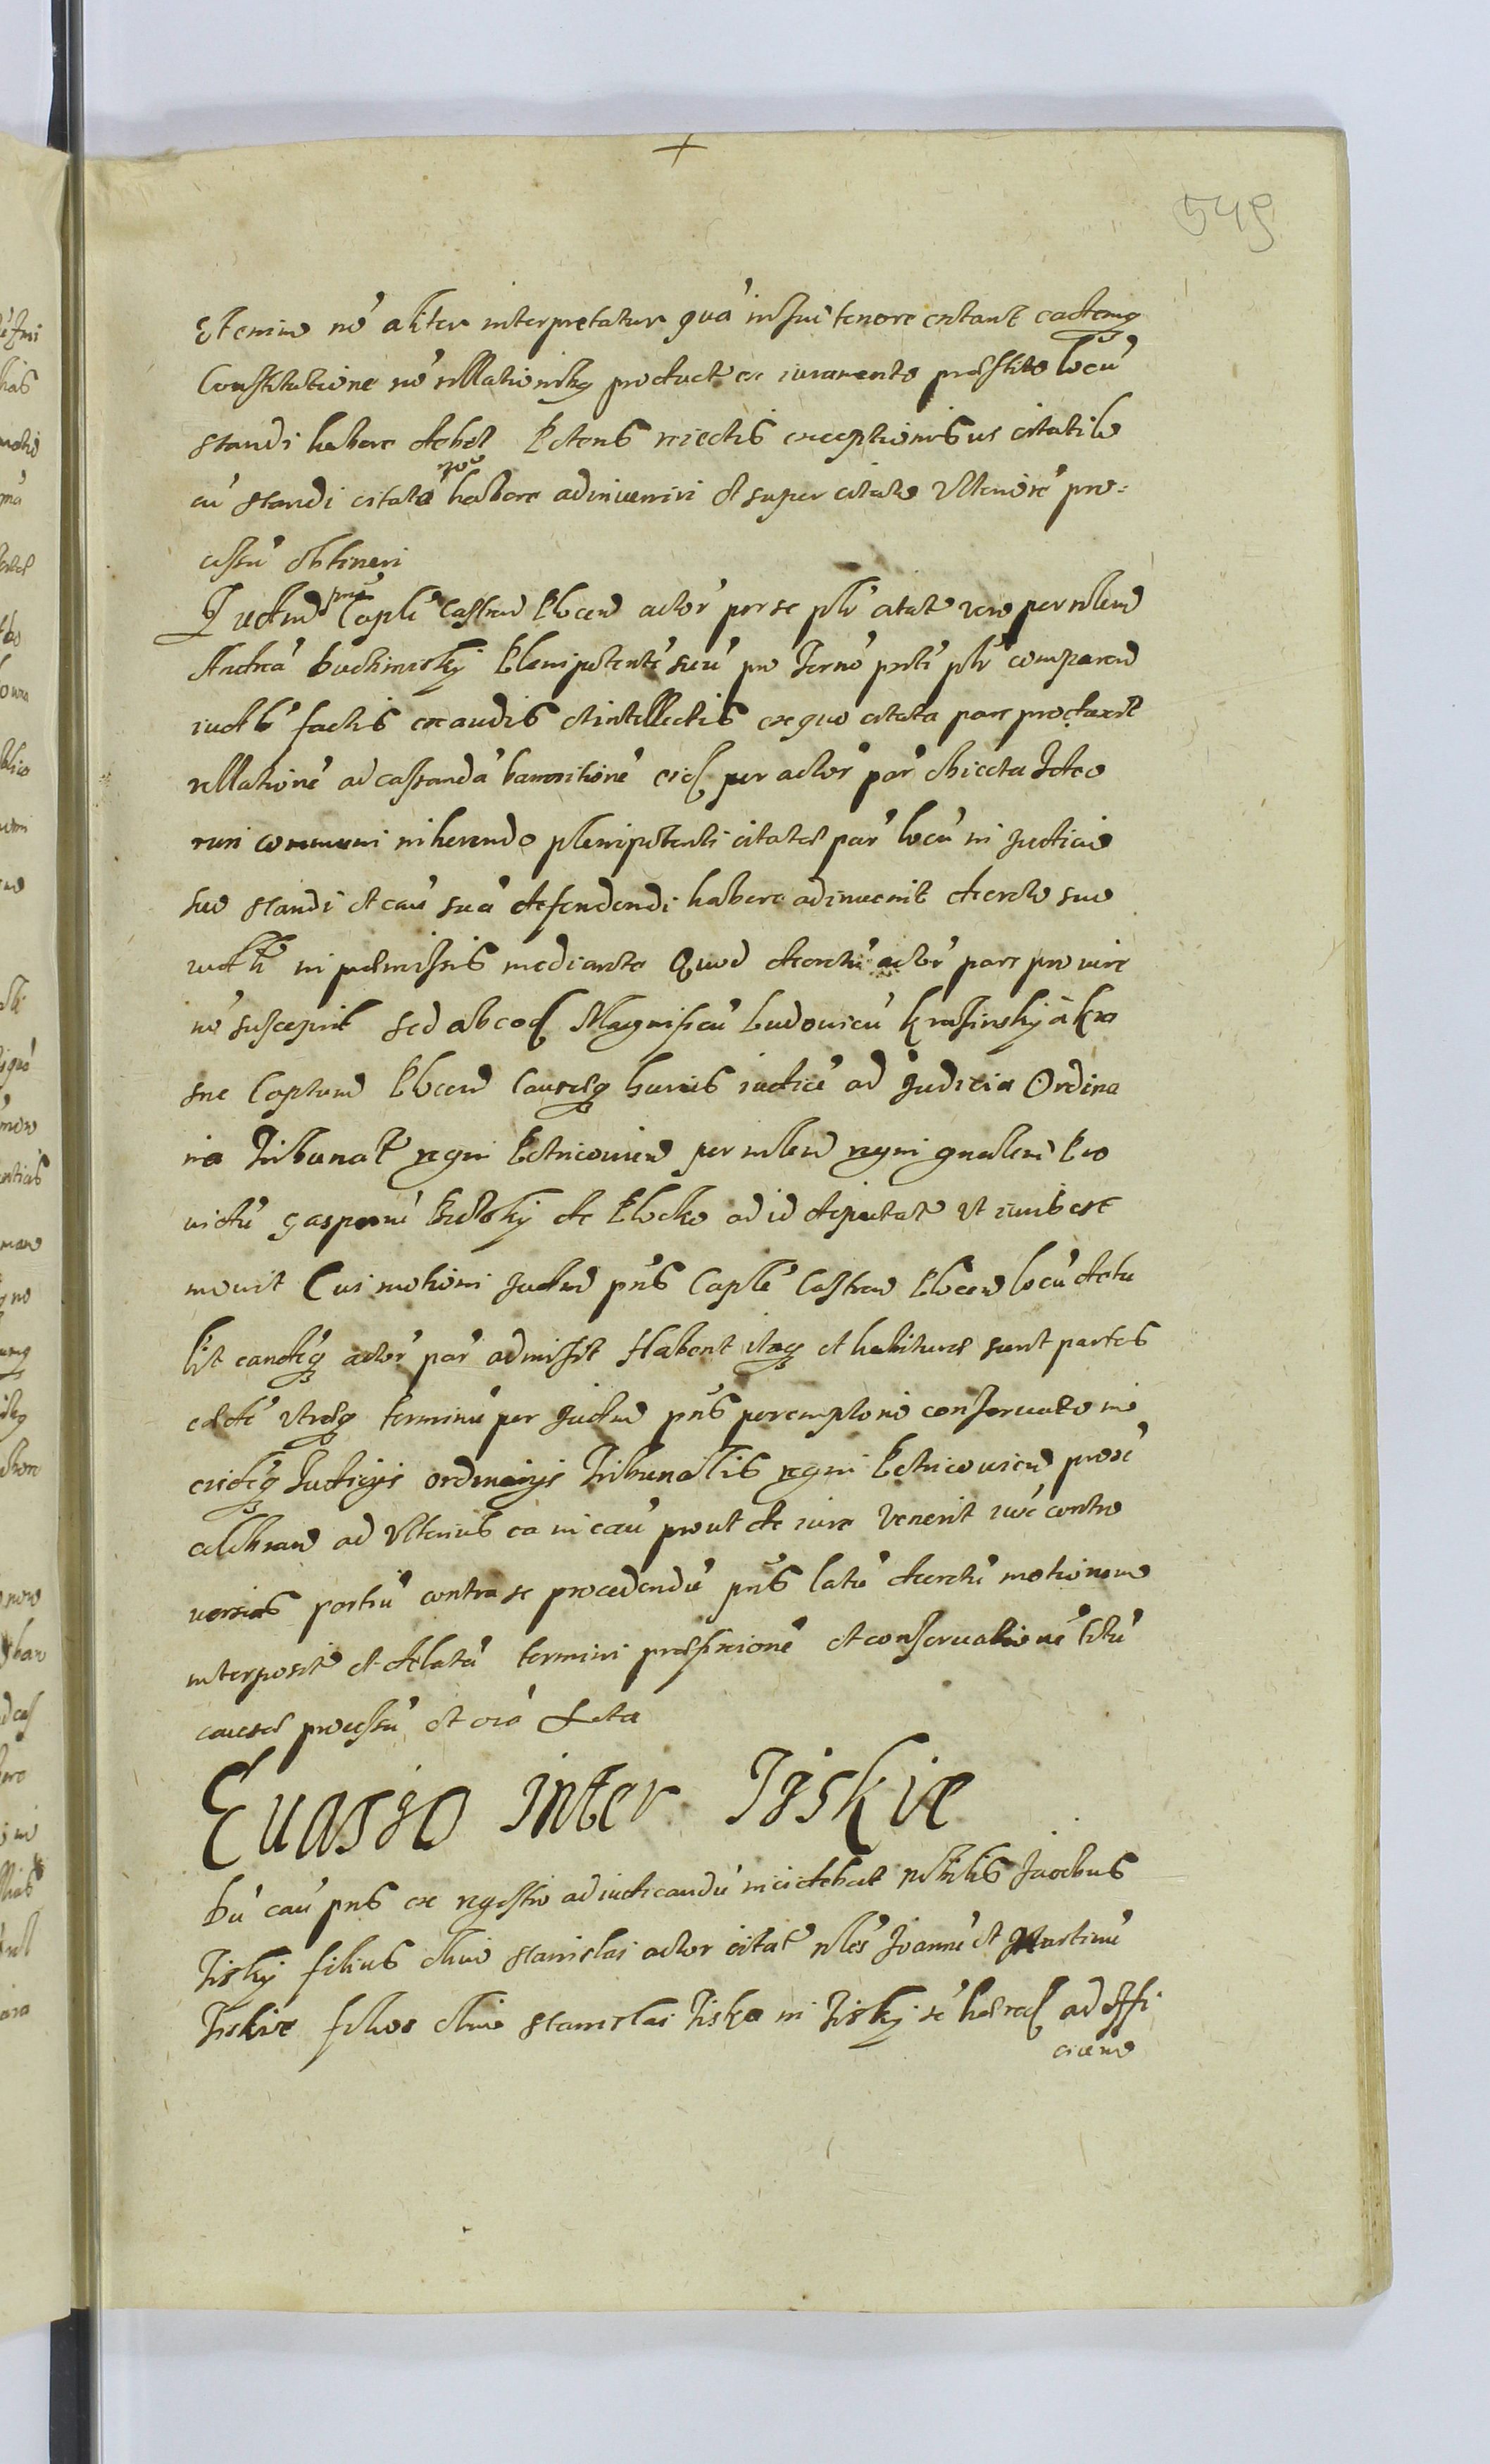 549
Etenim nō aliter interpretatur quā in sui tenore extant eademq
Constitutione nō rellationisq product ex iuramento prestito locū
standi habere debet Petens reiectis exceptionibus citati lo
cū standi citato non habere adinveniri et super citato Ulteriorē pro:
cessū obtineri
Judm pns Caplē Castren Plocen actor per se plr citat vero per nlem
Andrea buchinsky Plenipotentē suū pro Termo prti plr comparen
iudlr factis exaudis et intellectis ex quo citata pars produxit
rellationē ad cassandā bannitionē per actor par obiecta Ideo
iuri communi inherendo plenipotenti citatae par locū in Judicio
suo standi et cau suā defendendi habere adinvenit decreto suo
in praemissis mediante Quod decretū actor pars pro iure
nō suscepit sed ab eo Magnificū Ludovicū Krasinsky a kra
sne Captum Plocen Causaeq huius iudicē ad Judicia Ordina
ria Tribunal regni Petricovien per nlem regni gnalem Pro
vidū gasparū de Plocko ad id deputat Ut iuris est
movit Cui motioni Judm pns Caple Castren Plocen locū detu
lit eandēq actor par admisit Habent itaq et habiturae sunt partes
eaedē Utraeq terminū per Judm pns peremptorie conservato in
eisdēq Judicijs ordinarijs Tribunallis regni Petricovien proxī
celebran ad Ulterius ea in cau prout de iure Venerit iuxē contro
versias partiū contra se procedendū pns latū decretū motionem
interposit et delatā termini praefixionē et conservationē litū
causae processū et oiā Acta
Evasio inter Tiskie
Dū cau pns ex regestro ad iudicandū incidebat nobilis Jacobus
Tisky filius olim stanislai actor citat nles Joannē et Martinū
Tiskie filios olim stanislai Tiska in Tisky sē haered ad effi
ciend